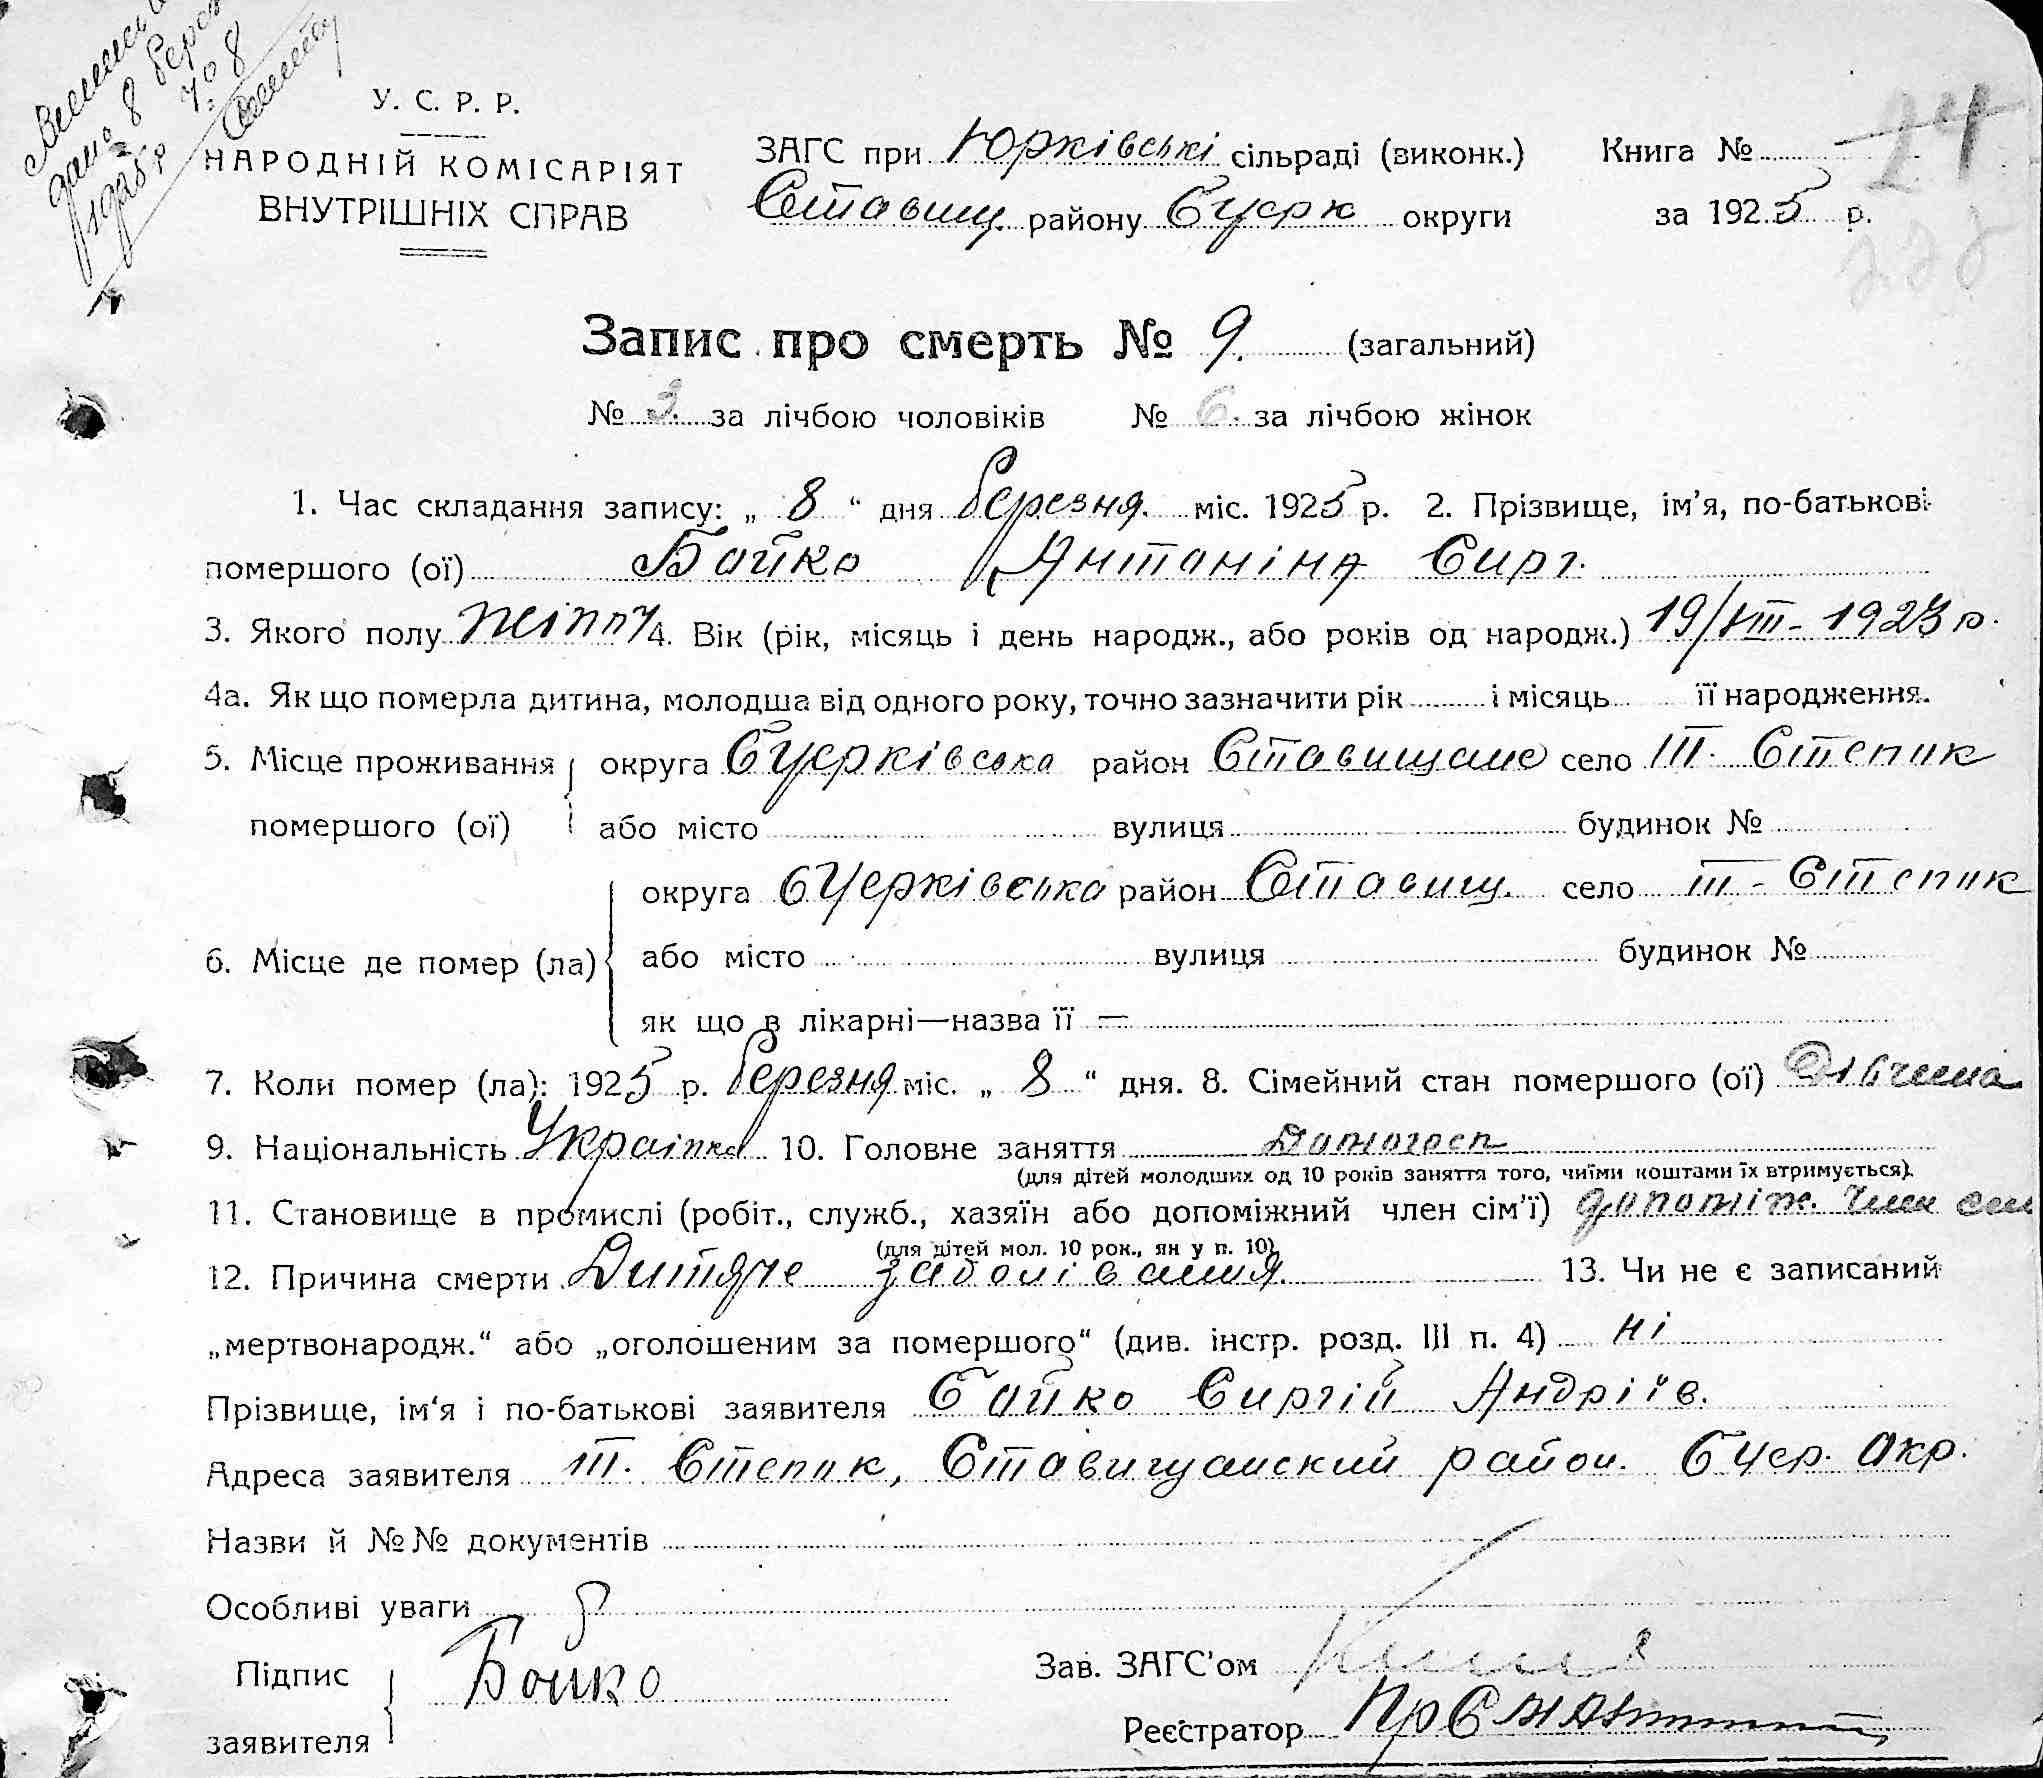 дано 8
1925 р № 8
У. С. Р. Р.
НАРОДНІЙ КОМІСАРІЯТ
ВНУТРІШНІХ СПРАВ
ЗАГС при Юрківські сільраді (виконк.) Книга № 24
Ставищ. району БЦерк округи за 1925 р.
228
Запис про смерть № 9. (загальний)
№ 3. за лічбою чоловіків № 6. за лічбою жінок
1. Час складання запису: „ 8 “ дня березня міс. 1925 р. 2. Прізвище, ім’я, по-батькові
помершого (ої) Бойко Антаніна Сирг.
3. Якого полу 4. Вік (рік, місяць і день народж., або років од народж.) 19/VIII - 1923 р.
4а. Як що померла дитина, молодша від одного року, точно зазначити рік і місяць її народження.
5. Місце проживання округа БЦерківська район село III. Степок
помершого (ої) або місто вулиця будинок №
округа БЦерківська район Ставищ. село III - Степок
6. Місце де помер (ла) або місто вулиця будинок №
як що в лікарні—назва її —
7. Коли помер (ла): 1925 р. березня міс. „ 8 “ дня. 8. Сімейний стан помершого (ої) Дівчина
9. Національність Українка 10. Головне заняття Домогосп
(для дітей молодших од 10 років заняття того, чиїми коштами їх втримується).
11. Становище в промислі (робіт., служб., хазяїн або допоміжний член сім’ї) допоміж. член сем
(для дітей мол. 10 рок., як у п. 10)
12. Причина смерти Дитяче заболівання. 13. Чи не є записаний
„мертвонародж.“ або „оголошеним за помершого“ (див. інстр. розд. III п. 4) ні
Прізвище, ім’я і по-батькові заявителя Бойко Сиргій Андріїв.
Адреса заявителя III. Степок, Ставищанский район. БЦер. Окр.
Назви й №№ документів
Особливі уваги
Підпис
заявителя Бойко
Зав. ЗАГС’ом
Реєстратор